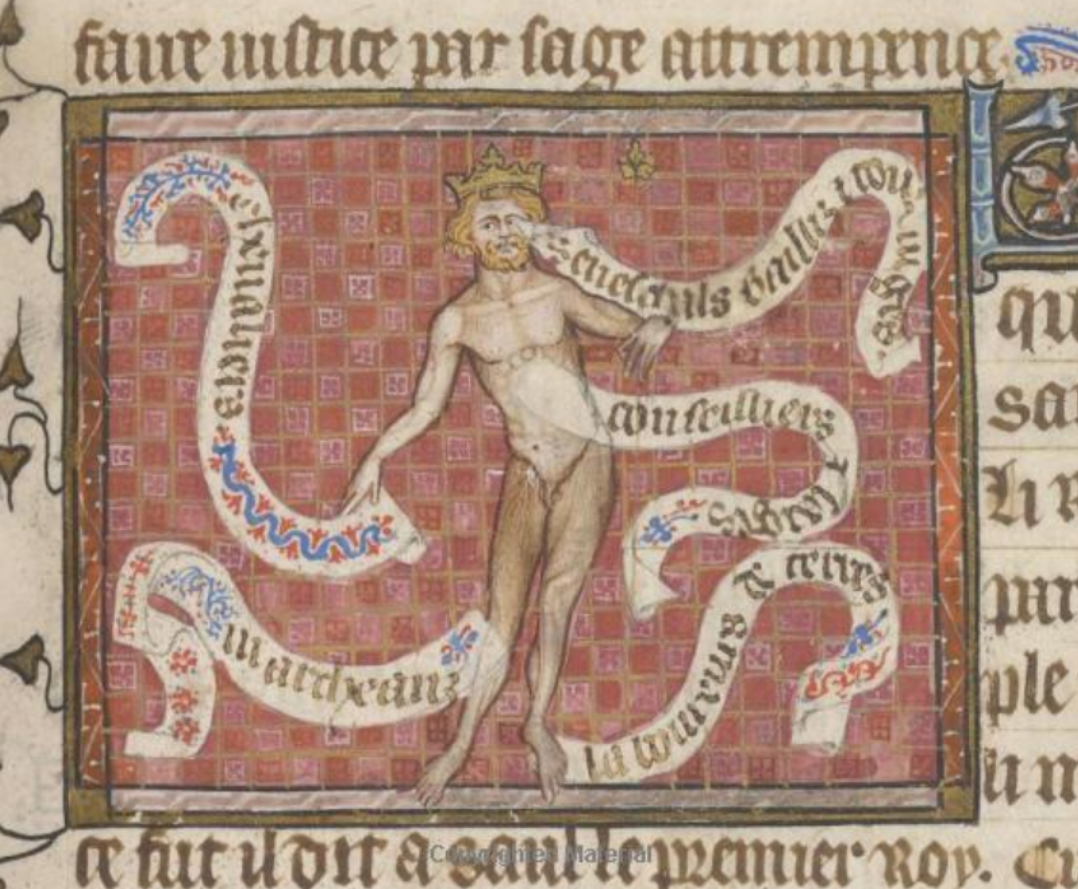 faire iustice par sage attrempence.
cheualiers
Seneschauls baillis & tous iuges.
conseilliers & sages
marcheans
laboureurs de terres
qu
sa
Li R
par
ple
li m
ce fut il dit a saul le premier Roy. Ci
Copyrighted Material